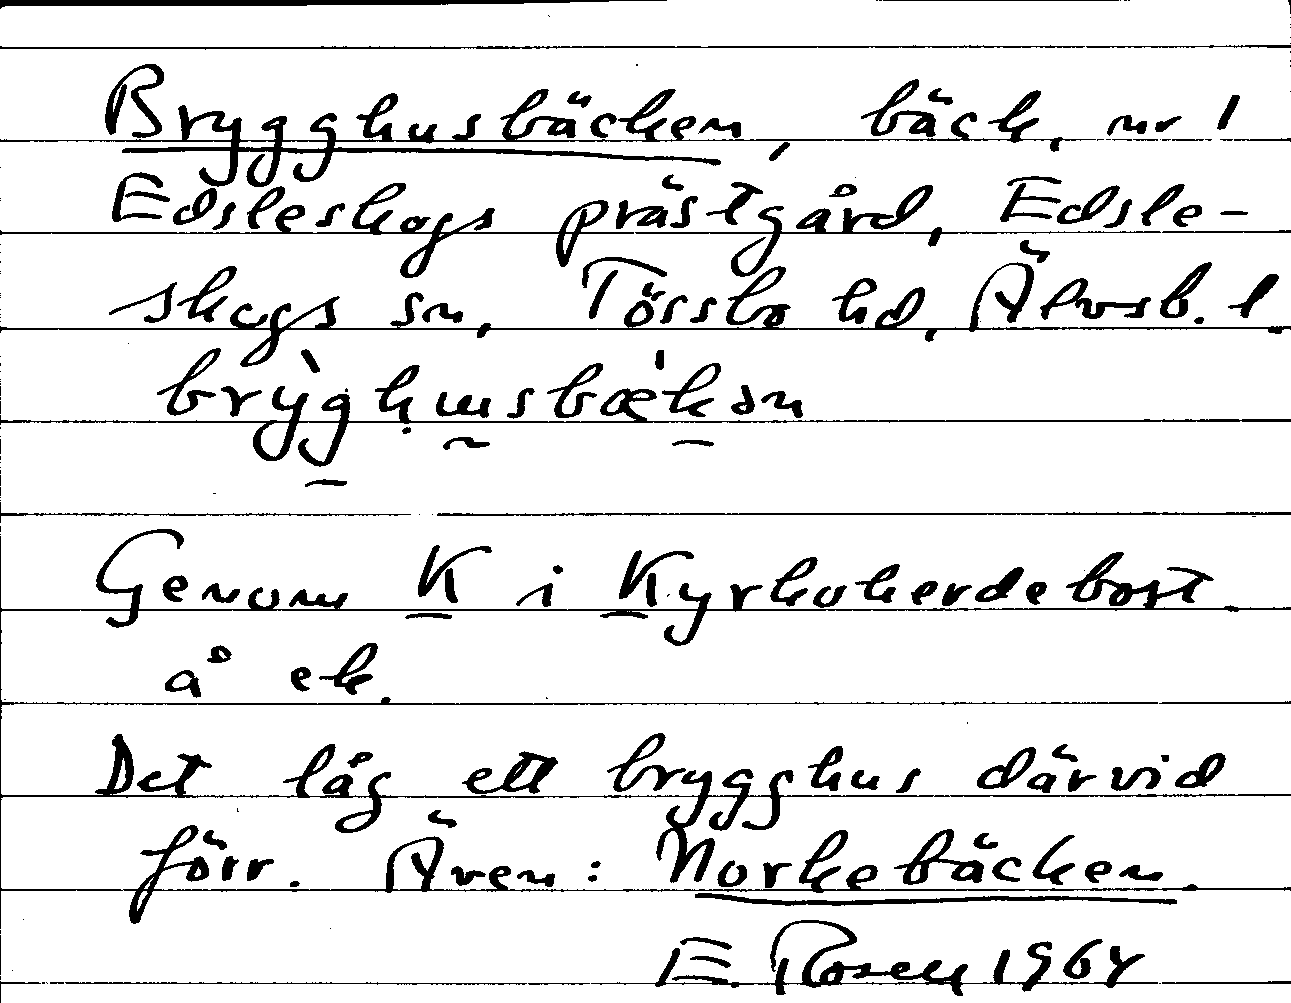 Brygghusbäcken, bäck, nr 1
Edsleskogs prästgård, Edsle-
skogs sn, Tössbo hd, Älvsb. l.
brỳghɯsbæ̍kən
Genom K i Kyrkoherdebost.
å ek.
Det låg ett brygghus därvid
förr. Även: Norkebäcken.
E. Rosell 1964